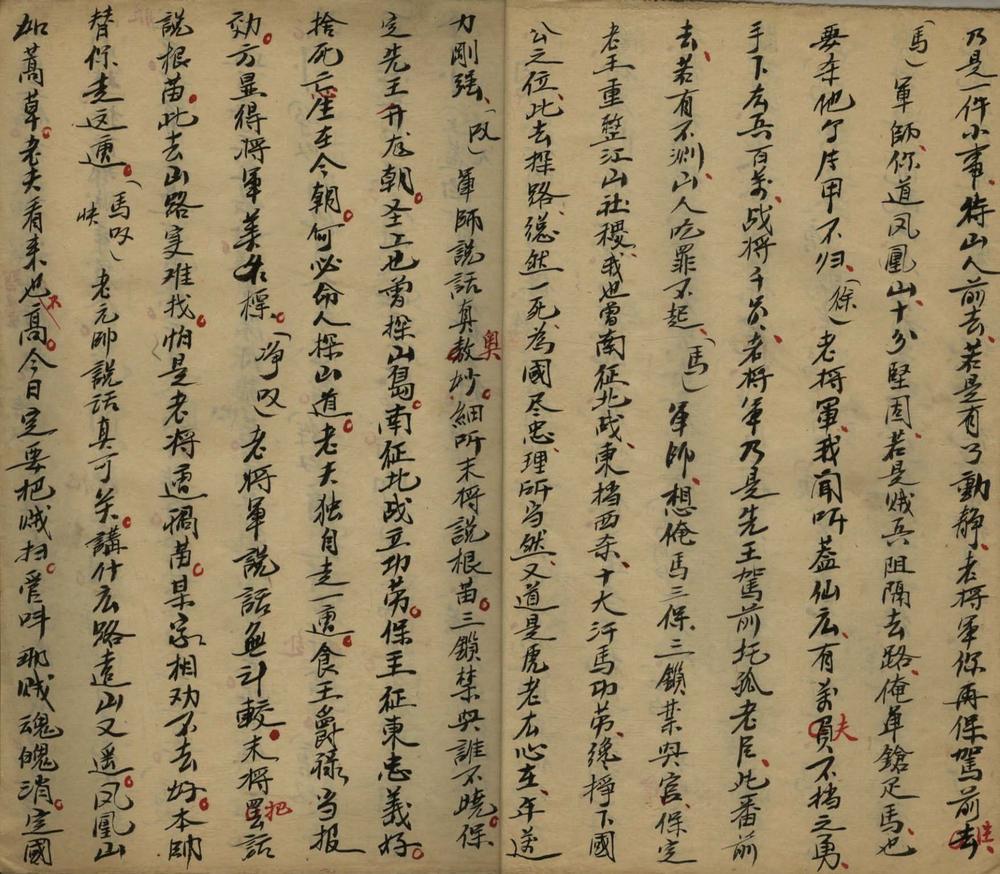 乃是一件小事、待山人前去、若是有了動静、老將軍你再保駕前去進
(馬)軍師、你道凤凰山、十分堅固、若是贼兵阻隔去路、俺单鎗疋馬、也
要杀他个片甲不归、(徐)老將軍、我聞听盖仙広、有萬員夫不挡之勇、
手下有兵百萬、战將千員、老將軍乃是先王駕前托孤老臣、此番前
去、若有不测、山人吃罪不起、(馬)軍師、想俺馬三保、三鎖禁與宫、保定
老王重整江山社稷、我也曾南征北战、東挡西杀、十大汗馬功劳、纔掙下國
公之位、此去探路、縂然一死、為國尽忠、理所当然、又道是虎老去心在、年邁
力剛强、(叹)軍師說話真教奥妙、細听末將說根苗。三鎖禁與誰不曉。保
定先王升龙朝。圣上也曾探山島。南征北战立功劳。保主征東忠義好。
捨死亡座在今朝。何必命人探山道。老夫独自走一遭。食王爵禄当报
効。方显得將軍美名標。(净叹)老將軍說話無計較。末將把言話
說根苗。此去山路实难找。怕是老將遭禍苗。某家相劝不去好。本帅
替你走这遭。(馬叹)快 老元帅說話真可笑。講什広路遠山又遥。凤凰山
如蒿草。老夫看来也不高。今日定要把贼扫。管叫那贼魂魄消。定國